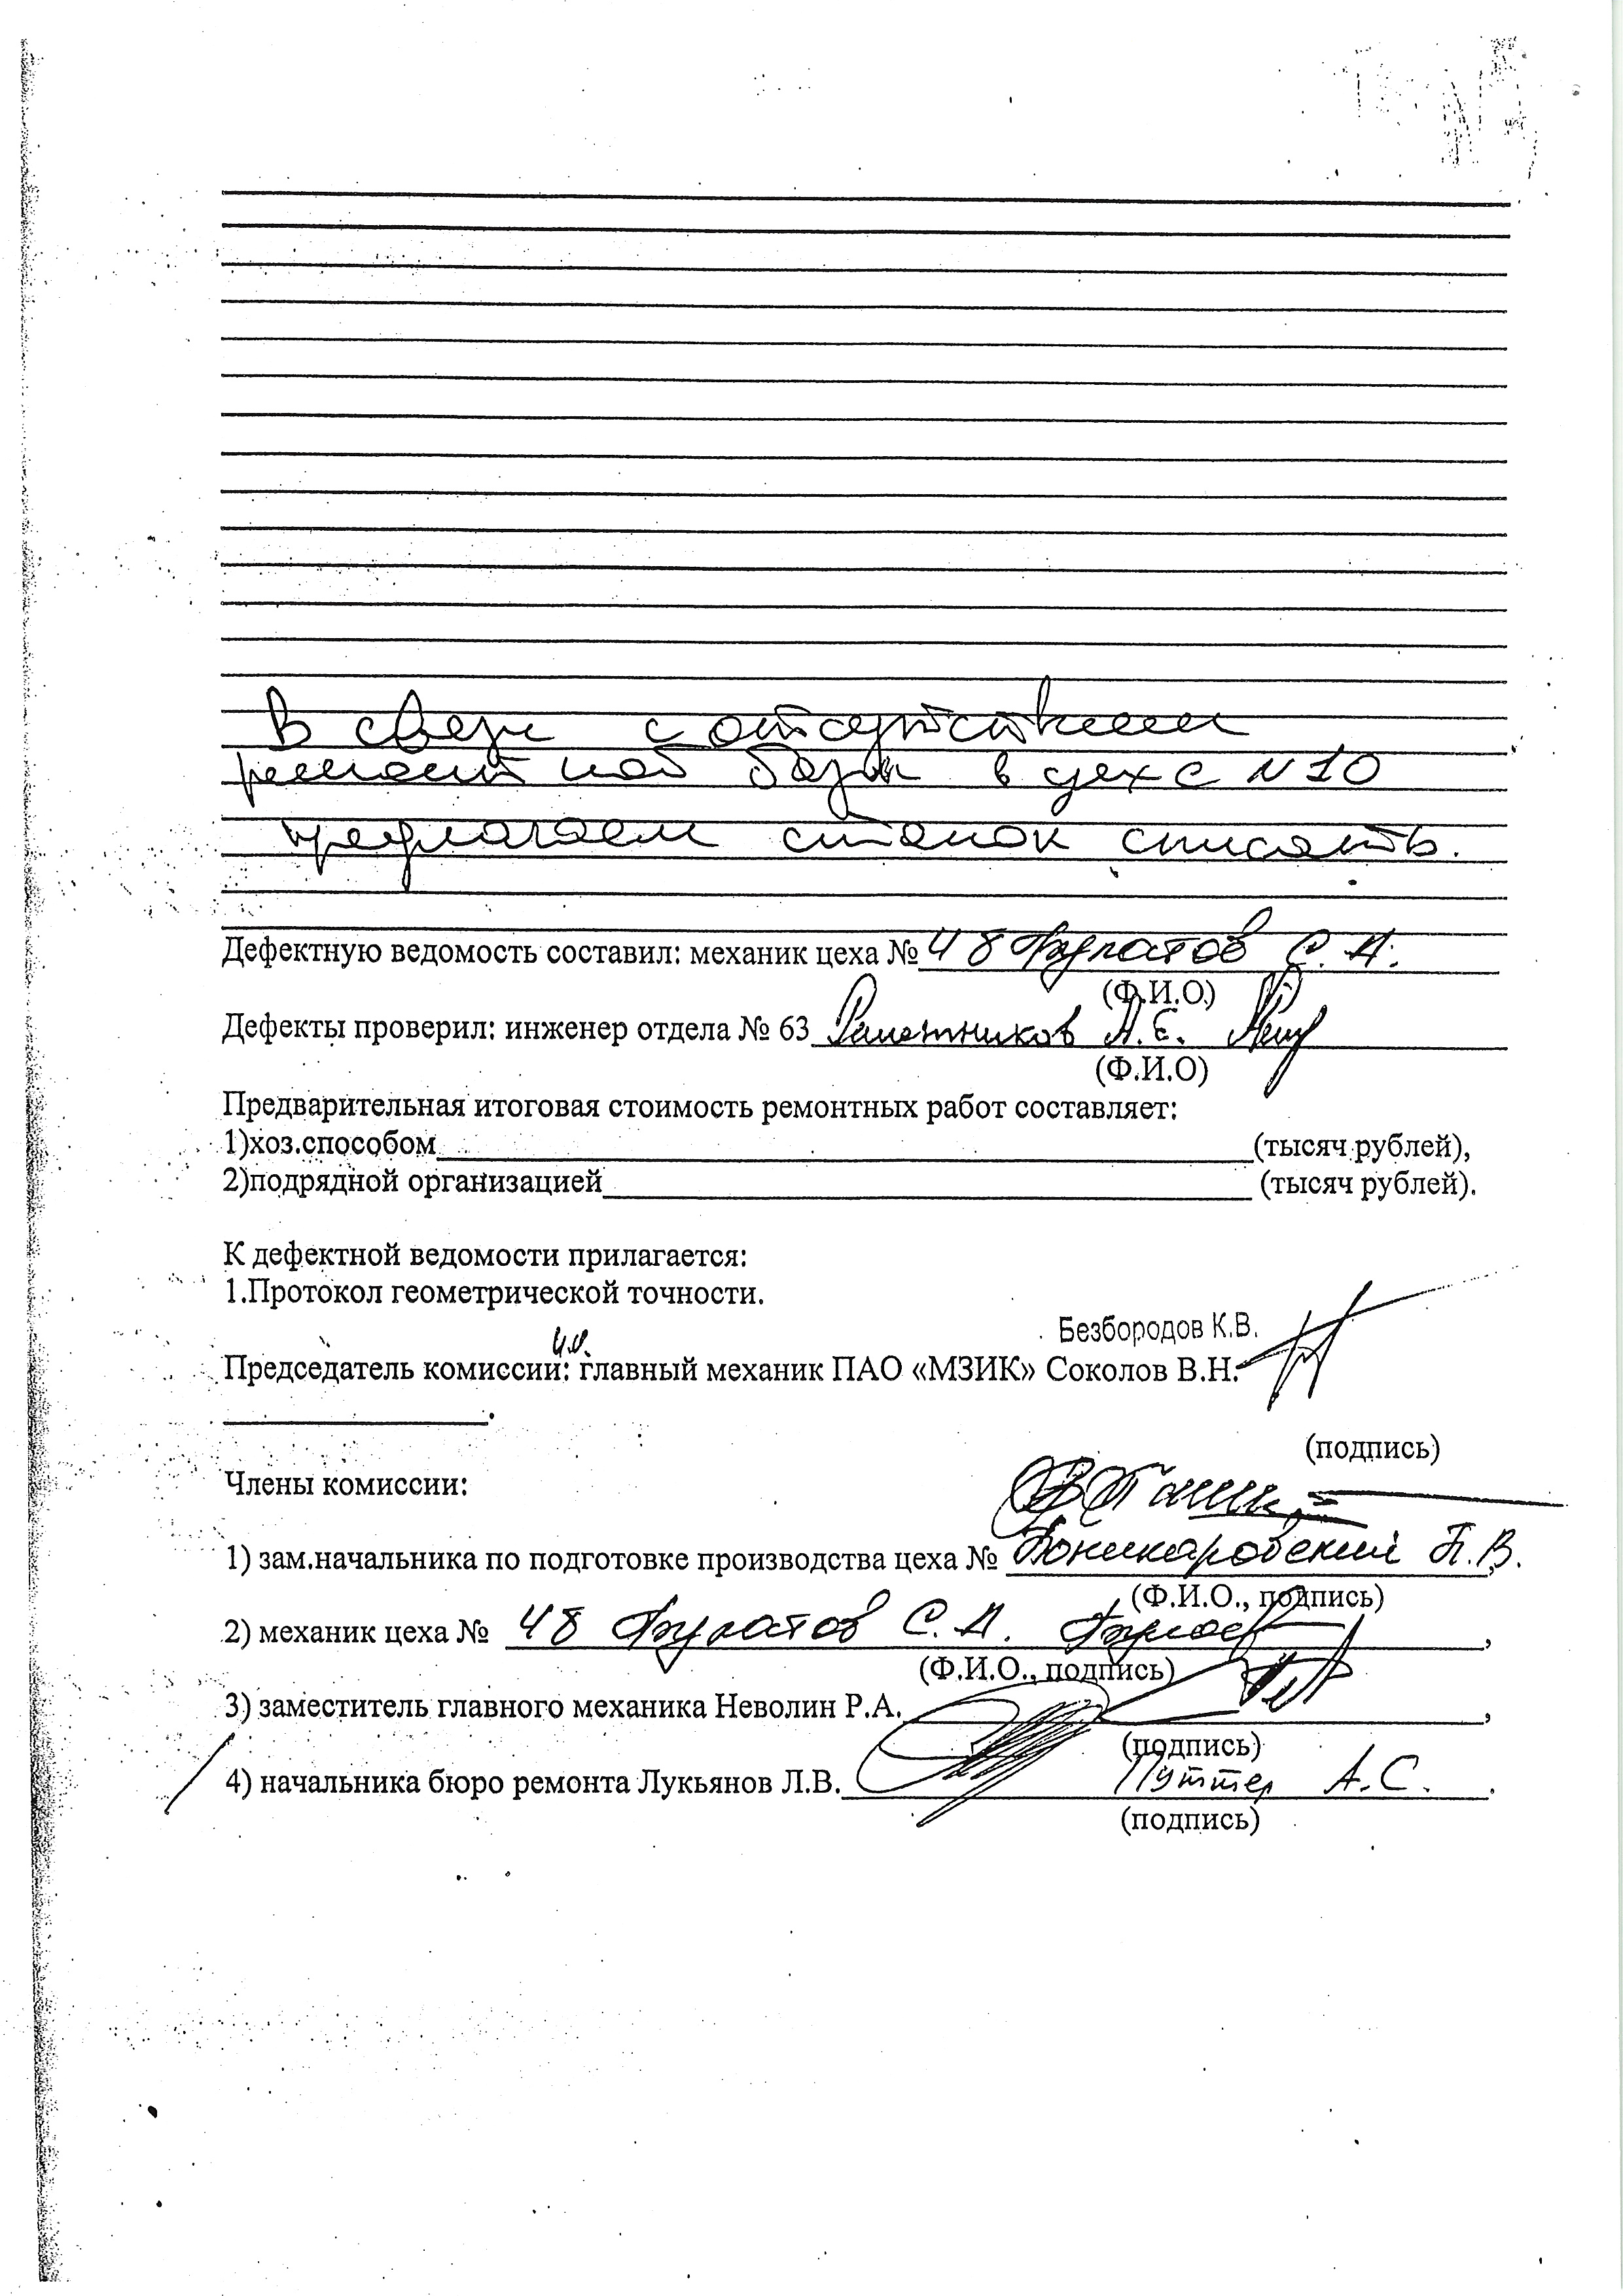 В связи с отсутствием
ремонтной базы в цехе N 10
предлагаем станок списать.
Дефектную ведомость составил: механик цеха № 48 Булатов С.А.
(Ф.И.О.)
Дефекты проверил: инженер отдела № 63 А.Е.
(Ф.И.О)
Предварительная итоговая стоимость ремонтных работ составляет:
1)хоз.способом (тысяч рублей),
2)подрядной организацией (тысяч рублей).
К дефектной ведомости прилагается:
1.Протокол геометрической точности.
Безбородов К.В.
и.о.
Председатель комиссии: главный механик ПАО «МЗИК» Соколов В.Н.
(подпись)
Члены комиссии:
1) зам.начальника по подготовке производства цеха № П.В.
(Ф.И.О., подпись)
2) механик цеха № 48 Булатов С.А.
(Ф.И.О., подпись)
3) заместитель главного механика Неволин Р.А.
(подпись)
4) начальника бюро ремонта Лукьянов Л.В. Путтер А.С.
(подпись)